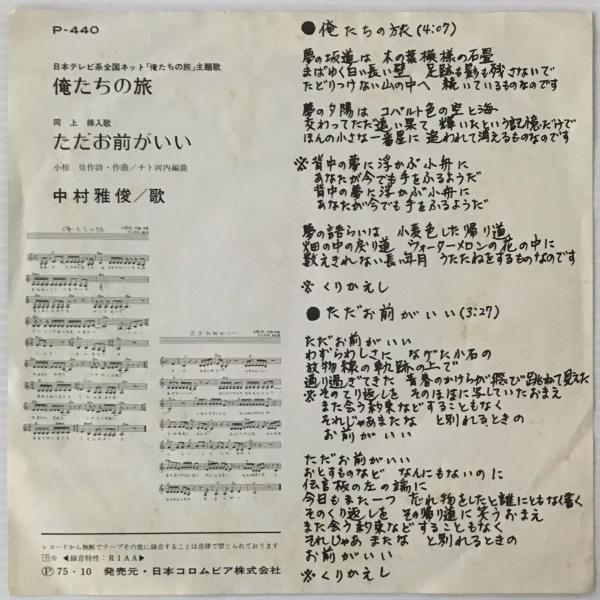 P-440
日本テレビ系全国ネット「俺たちの旅」主題歌
俺たちの旅
同上 挿入歌
ただお前がいい
小椋 佳作詩・作曲/チト河内編曲
中村雅俊/歌
俺たちの旅
ただお前がいい
レコードから無断でテープその他に録音することは法律で禁じられております
◀録音特性:RIAA▶
Ⓟ75・10 発売元・日本コロムビア株式会社
●俺たちの旅(4:07)
夢の坂道は 木の葉模様の石畳
まばゆく白い長い壁 足跡も影も残さないで
たどりつけない山の中へ 続いているものなのです
夢の夕陽は コバルト色の空と海
交わってただ遠い果て 輝いたという記憶だけで
ほんの小さな一番星に 追われて消えるものなのです
※背中の夢に浮かぶ小舟に
あなたが今でも手をふるようだ
背中の夢に浮かぶ小舟に
あなたが今でも手をふるようだ
夢の語らいは 小麦色した帰り道
畑の中の戻り道 ウォーターメロンの花の中に
数えきれない長い年月 うたたねをするものなのです
※くりかえし
●ただお前がいい(3:27)
ただお前がいい
わずらわしさに なげた小石の
放物線の軌跡の上で
通り過ぎてきた 青春のかけらが飛び跳ねて見えた
※そのくり返しを そのほほに写していたおまえ
また会う約束などすることもなく
それじゃあまたな と別れるときの
お前がいい
ただお前がいい
おとすものなど なんにもないのに
伝言板の左の端に
今日もまた一つ 忘れ物をしたと誰にともなく書く
そのくり返しを その帰り道に笑うおまえ
また会う約束などすることもなく
それじゃあまたな と別れるときの
お前がいい
※くりかえし